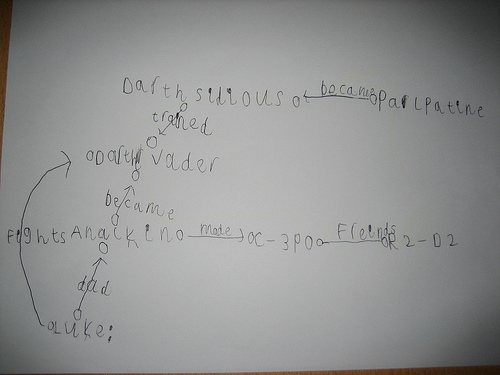 Darth sidious became Parlpatine
traned
Darth Vader
became
Fights Anaikin made C-3PO Freinds R2-D2
dad
Luke: